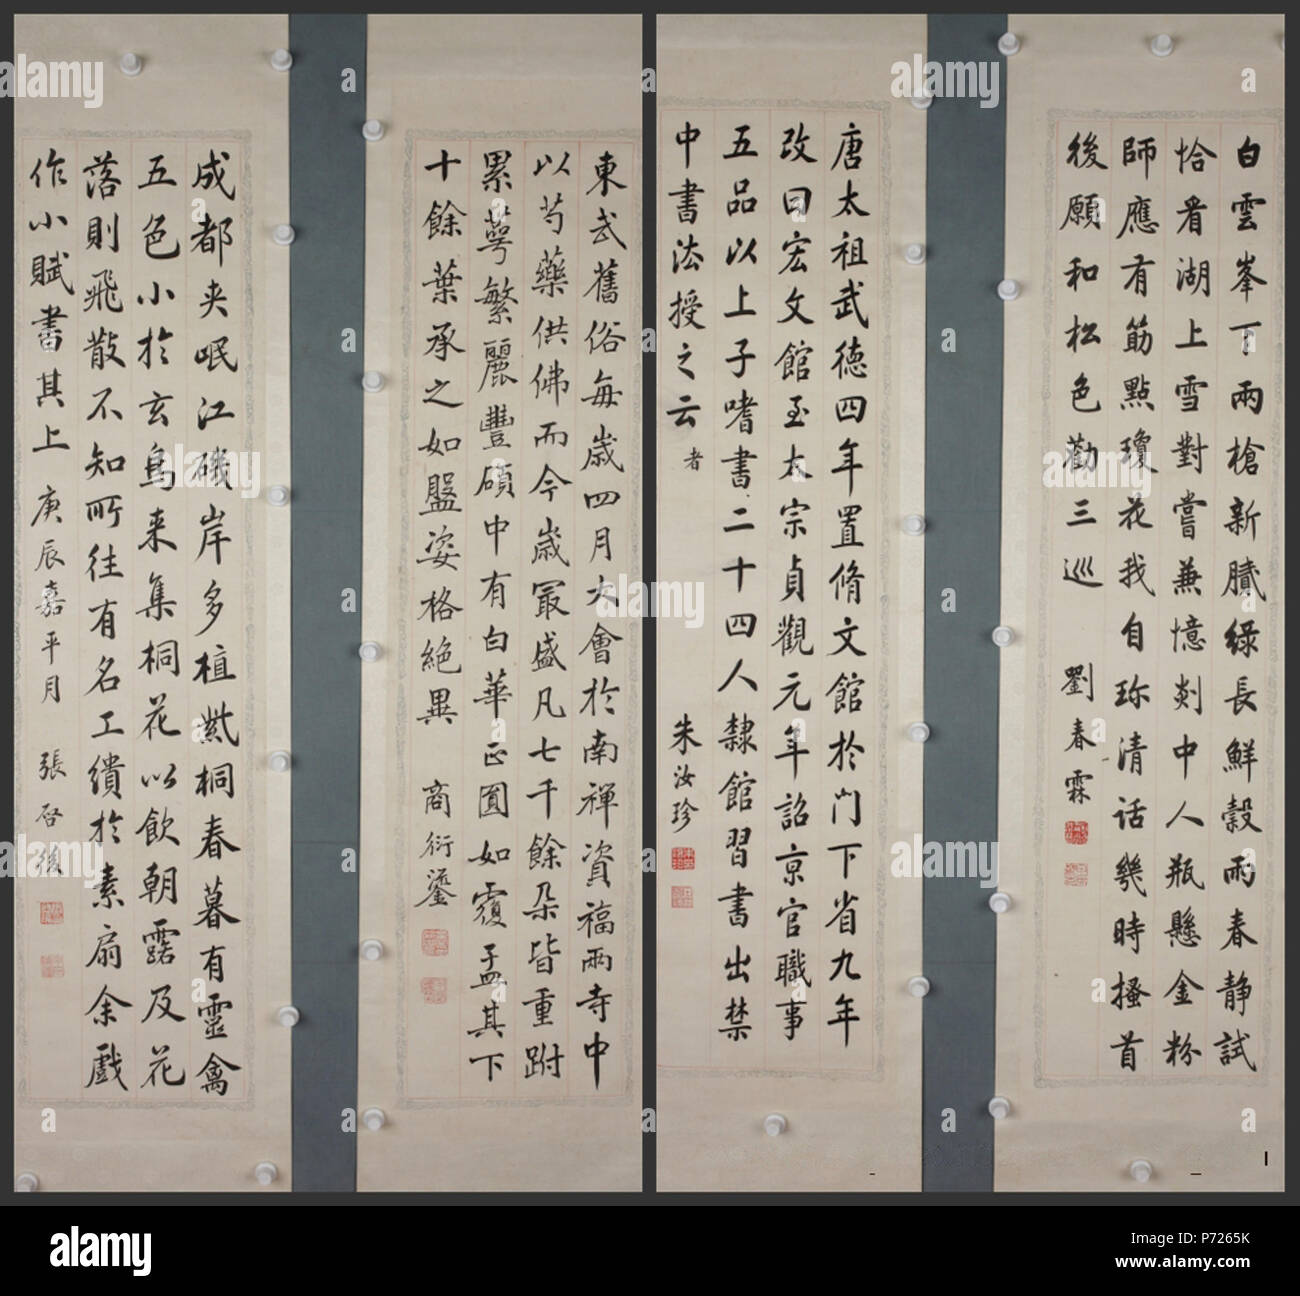 白雲峯下兩槍新膩綠長鮮穀雨春靜試
恰看湖上雪對嘗兼憶剡中人瓶懸金粉
師應有筋點瓊花我自珎清話幾時搔首
後願和松色勸三巡
劉春霖
唐太祖武德四年置脩文館於門下省九年
改曰宏文館至太宗貞觀元年詔京官職事
五品以上子嗜書二十四人隸館習書出禁
中書法授之云者
朱汝珍
東武舊俗每歲四月大會於南禪資福兩寺中
以芍藥供佛而今歲㝡盛凡七千餘朵皆重跗
累萼繁麗豐碩中有白華正圓如覆盂其下
十餘葉承之如盤姿格絕異
商衍鎏
成都夾岷江磯岸多植紫桐春暮有靈禽
五色小於玄鳥来集桐花以飲朝露及花
落則飛散不知所往有名工繢於素扇余戲
作小賦書其上 庚辰嘉平月
張啓後
alamy
a
Image ID: P7265K
www.alamy.com